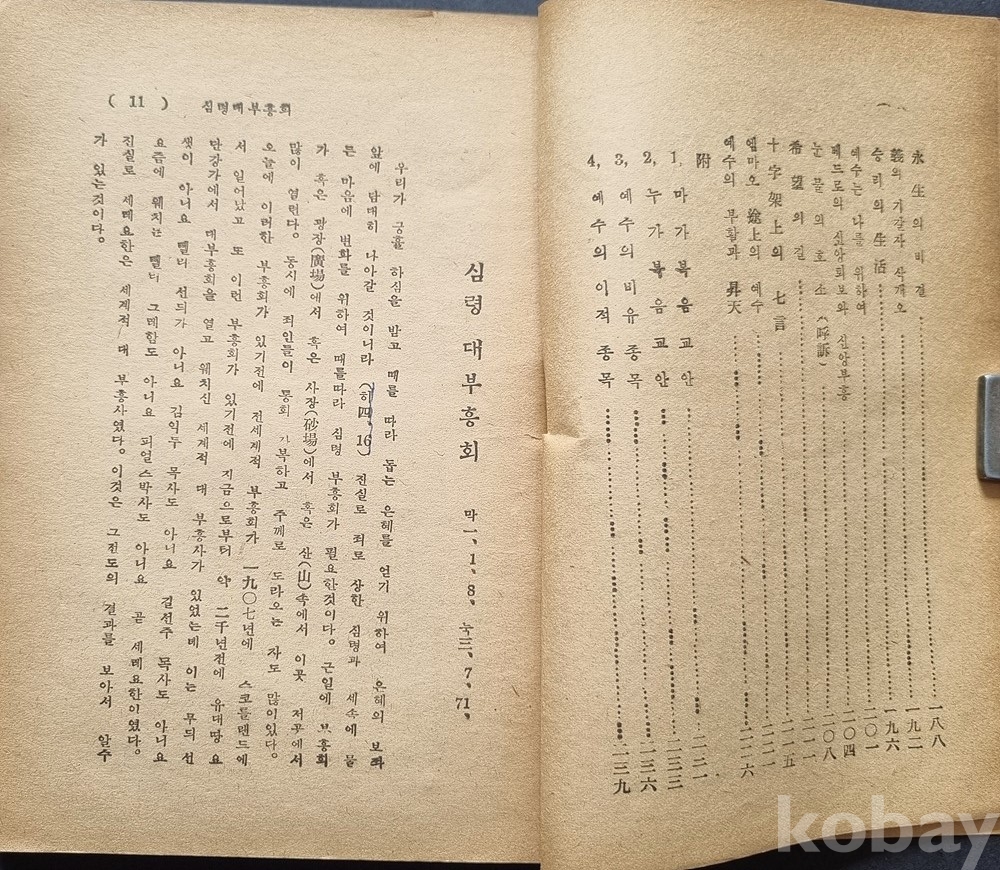 永生의 비결 ……… 一八八
義의 기갈자 삭개오 ……… 一九二
승리의 生活 ……… 一九六
예수는 나를 위하여 ……… 二〇一
베드로의 신앙퇴보와 신앙부흥 ……… 二〇四
눈물의 호소(呼訴) ……… 二〇八
希望의 길 ……… 二一一
十字架上의 七言 ……… 二一五
엠마오 途上의 예수 ……… 二二一
예수의 부활과 昇天 ……… 二二六
附
1, 마가복음교안 ……… 二三一
2, 누가복음교안 ……… 二三三
3, 예수의비유종목 ……… 二三六
4, 예수의이적종목 ……… 二三九
( 11 ) 심령대부흥회
심령대부흥회 막一、1、8、눅三、7、71、
우리가 긍휼 하심을 받고 때를 따라 돕는 은혜를 얻기 위하여 은혜의 보좌
앞에 담대히 나아갈 것이니라 (히四、16) 진실로 죄로 상한 심령과 세속에 물
른 마음에 변화를 위하여 때를따라 심령 부흥회가 필요한것이다。 근일에 부흥회
가 혹은 광장(廣場)에서 혹은 사장(砂場)에서 혹은 산(山)속에서 이곳 저곳에서
많이 열린다。 동시에 죄인들이 통회 자복하고 주께로 도라오는 자도 많이있다。
오늘에 이러한 부흥회가 있기전에 전세계적 부흥회가 一九〇七년에 스코틀랜드에
서 일어났고 또 이런 부흥회가 있기전에 지금으로부터 약 二千년전에 유대땅 요
단강가에서 대부흥회을 열고 웨치신 세계적 대 부흥사가 있었는데 이는 무듸 선
생이 아니요 뻴리 선듸가 아니요 김익두 목사도 아니요 길선주 목사도 아니요
요즘에 웨치는 뻴리 그레함도 아니요 피얼스박사도 아니요 곧 세례요한이였다。
진실로 세례요한은 세계적 대 부흥사였다。 이것은 그전도의 결과를 보아서 알수
가 있는것이다。
kobay